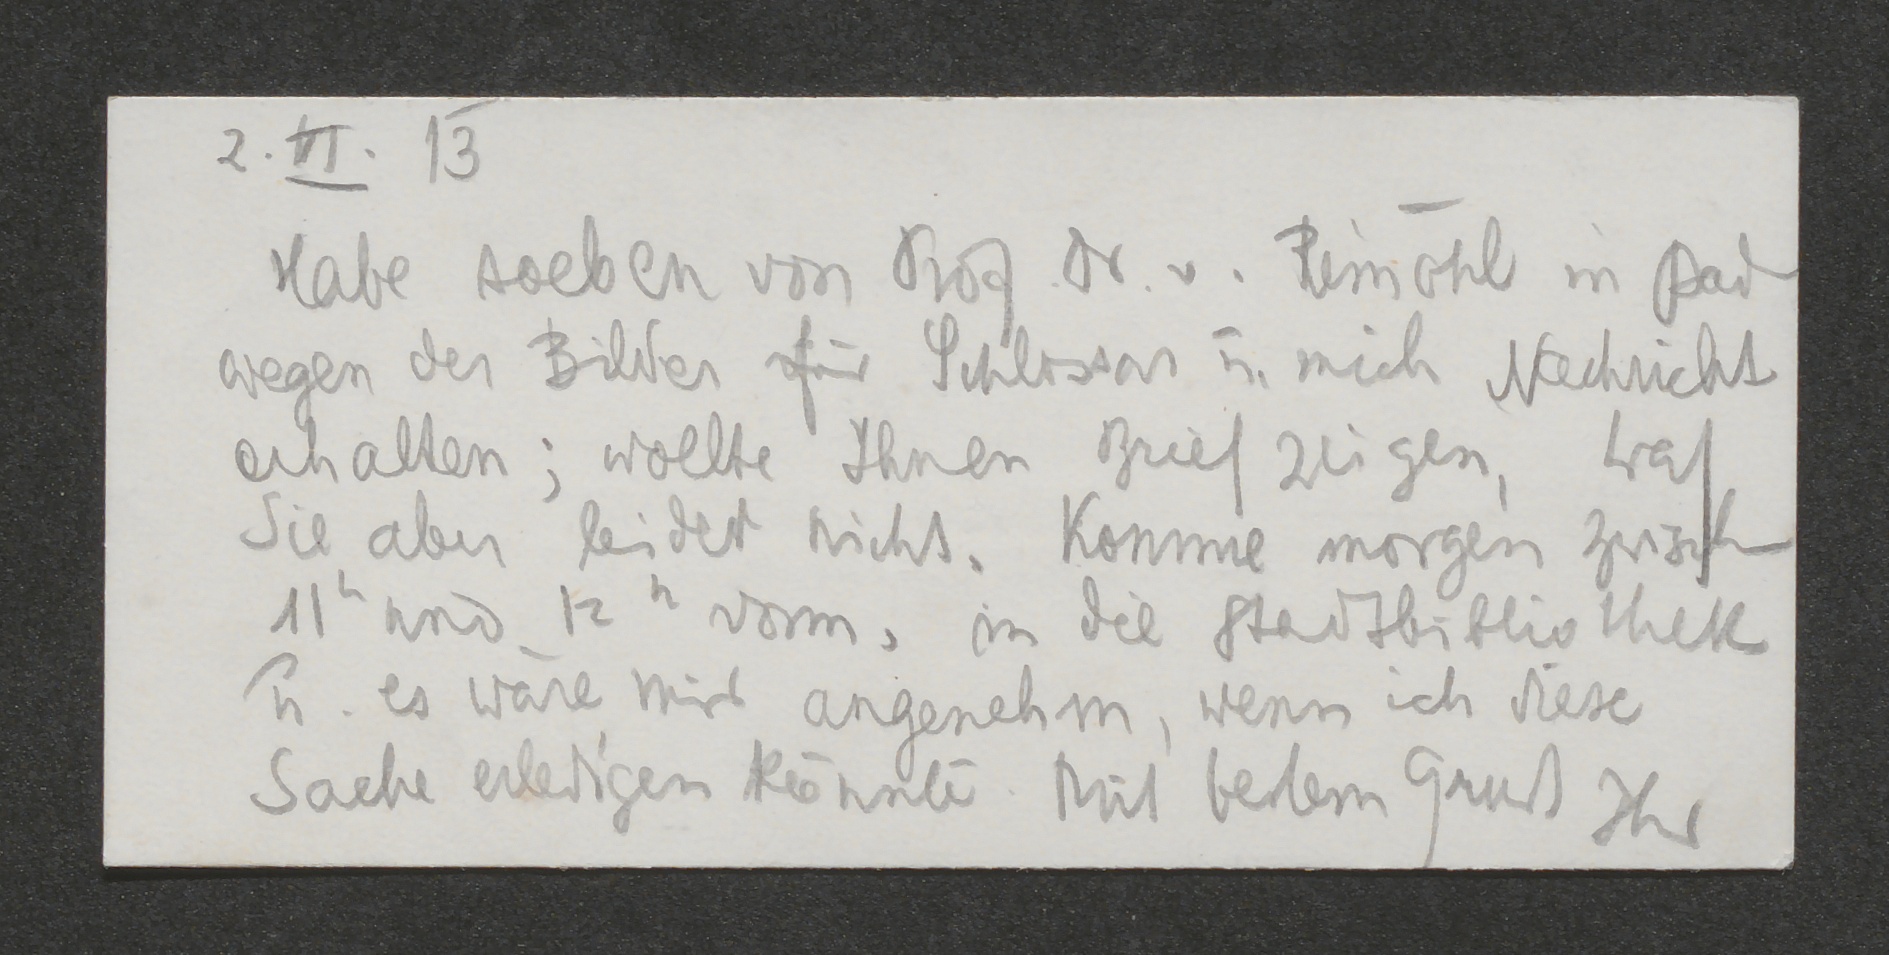 2. VI. 13
Habe soeben von Prof. Dr. v. Reinöhl in Bad
wegen der Bilder für Schlossar u. mich Nachricht
erhalten; wollte Ihnen Brief zeigen, traf
Sie aber leider nicht. Komme morgen zwisch
11h und 12h vorm. in die Stadtbibliothek
u. es wäre mir angenehm, wenn ich diese
Sache erledigen könnte. Mit bestem Gruß Ihr